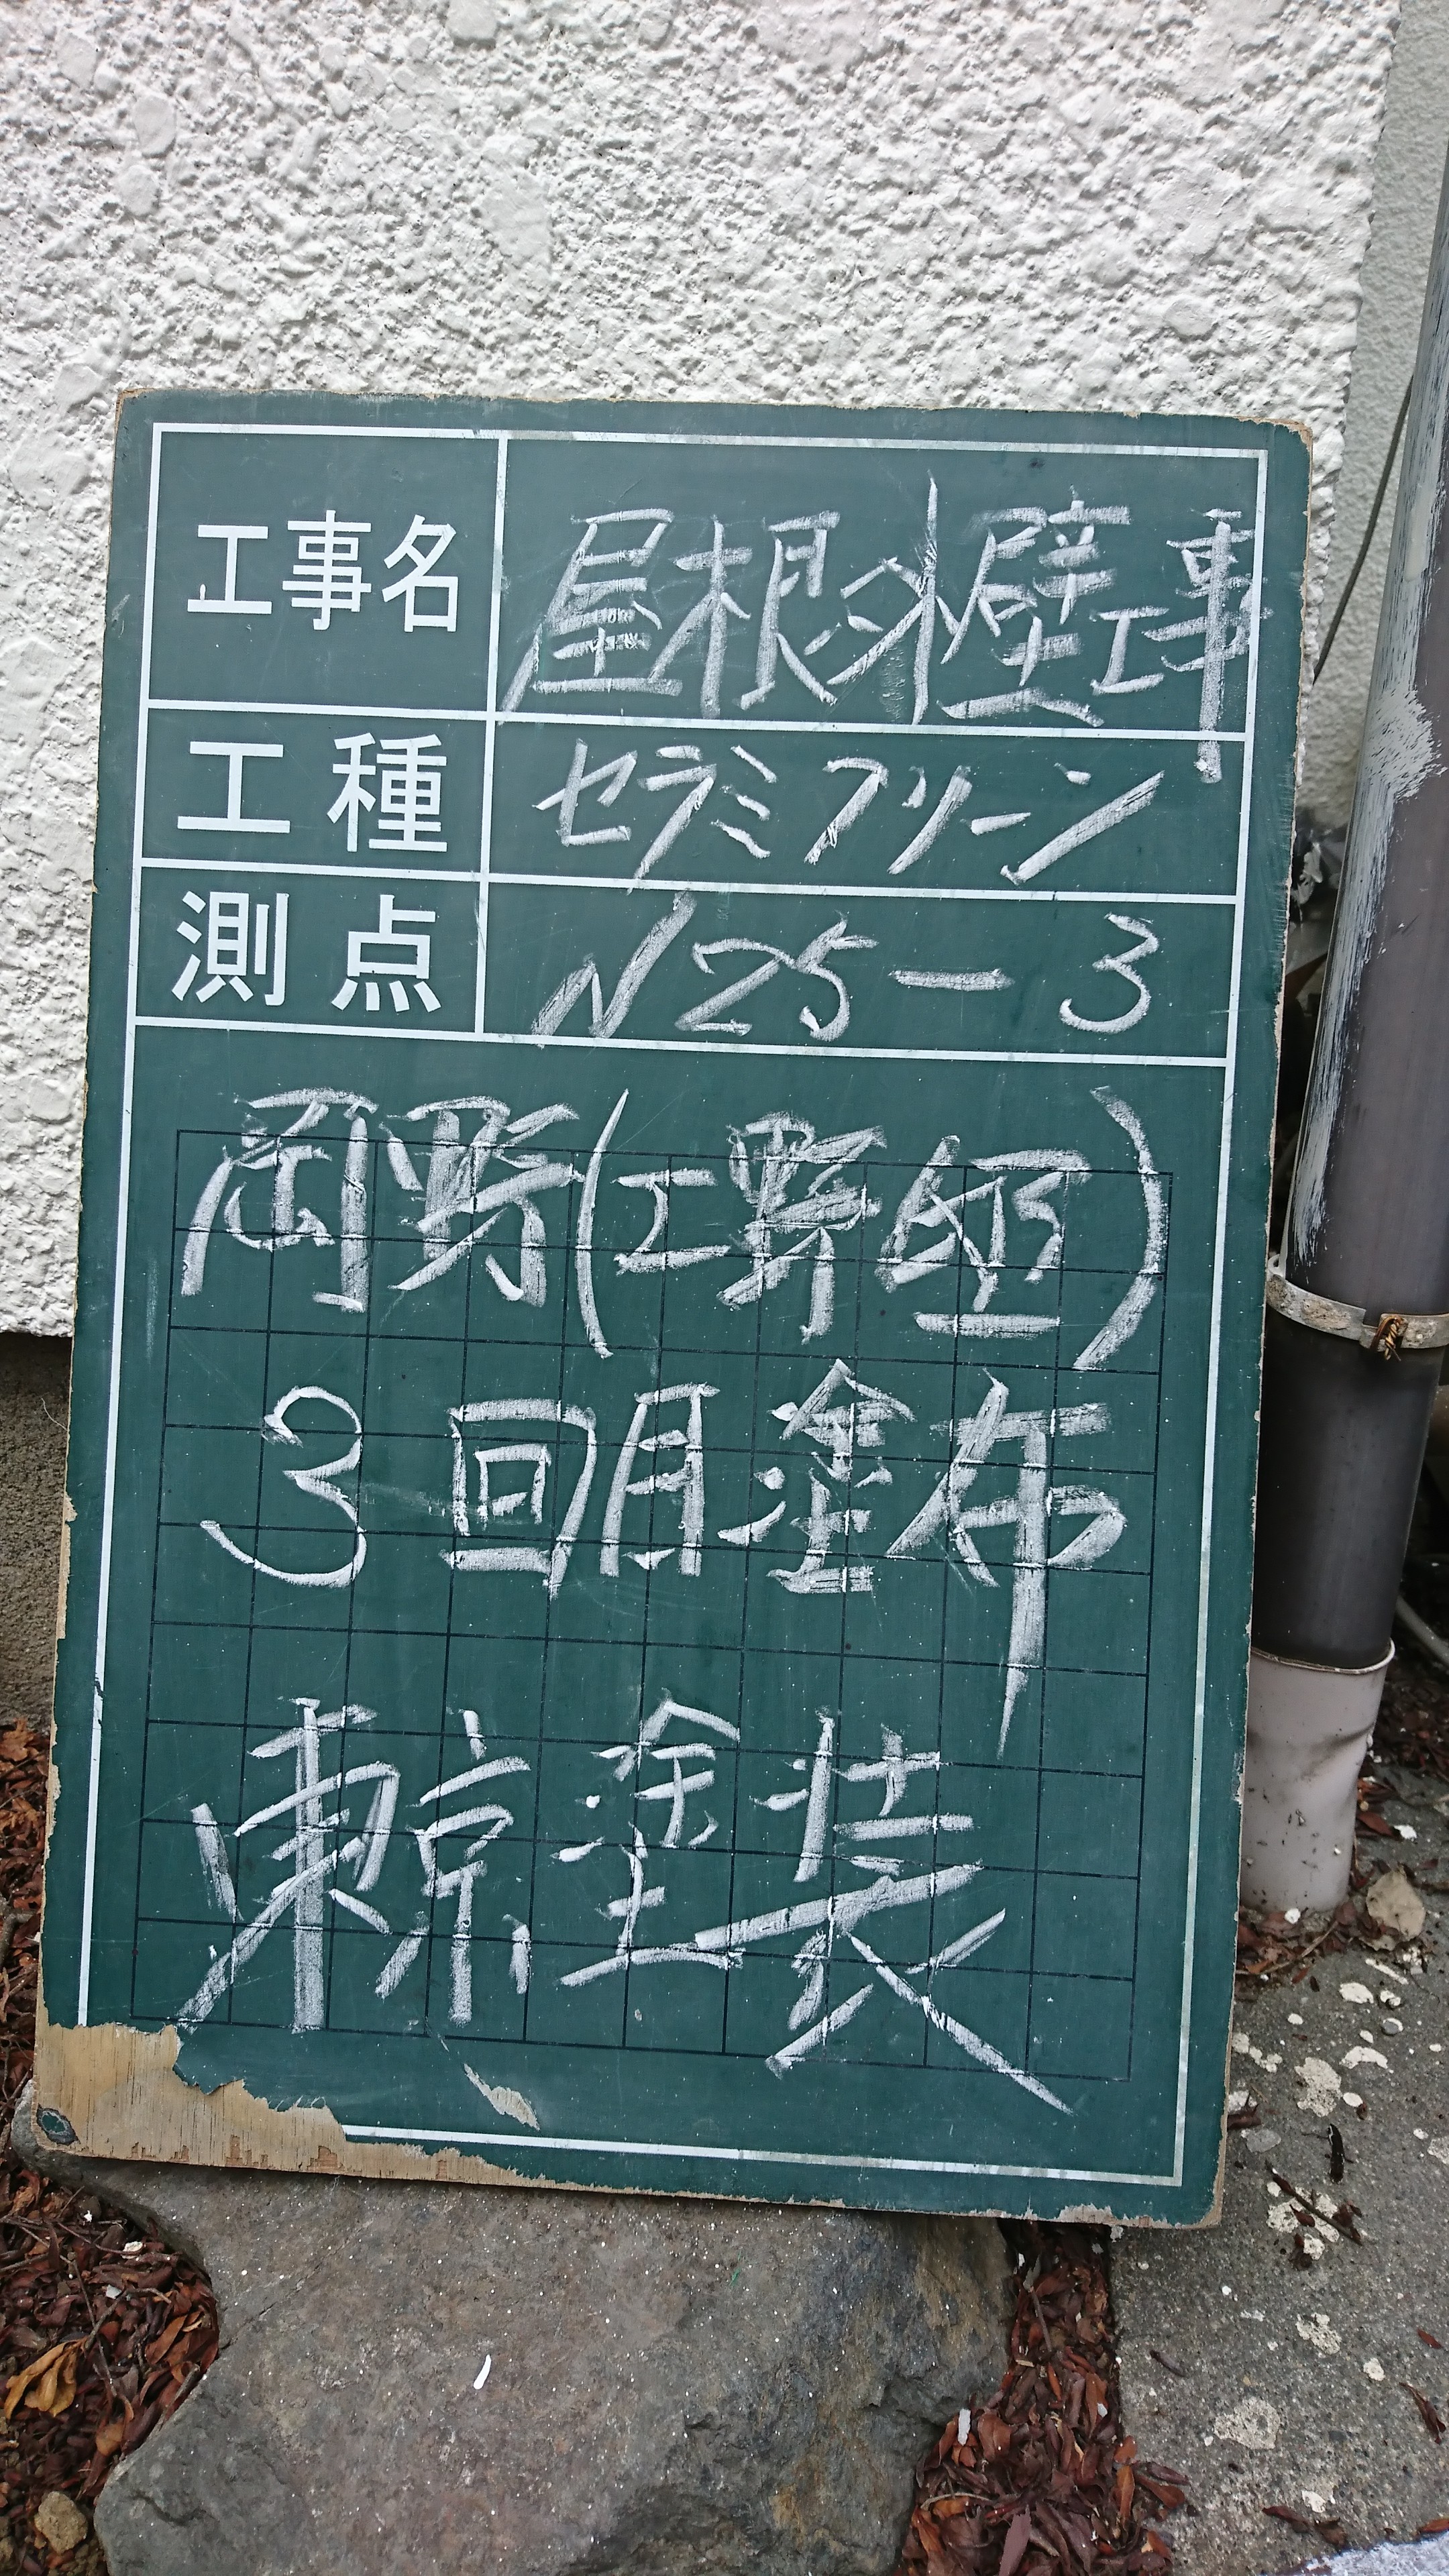 工事名 屋根外壁工事
工種 セラミクリーン
測点 N25-3
岡野(工野
3回目塗布
東京塗装